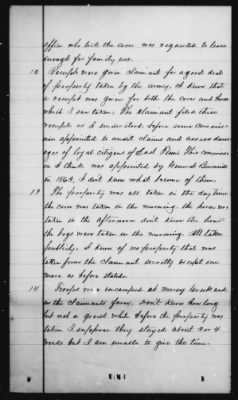 officer who took the corn was requested to leave
enough for family use.
12 Receipt was given claimant for a good deal
of property taken by the army, I know that
a receipt was given for both the corn and horse
which I saw taken. The claimant filed these
receipts as I understand before some commiss-
ion appointed to audit claims and assess dama-
ges of loyal citizens of East Tenn. This commiss-
ion I think was appointed by General Burnside
in 1863, I don't know what became of them.
13 The property was all taken in the day time
the corn was taken in the morning. the horse was
taken in the afternoon don't know the hour
the hogs were taken in the morning. All taken
publicly. I know of no property that was
taken from the claimant secretly except one
mare as before stated.
14 Troops were encamped at mossy Creek and
on the claimants farm. Don't know how long
but not a great while before the property was
taken I suppose they stayed about 3 or 4
weeks but I am unable to give the time.